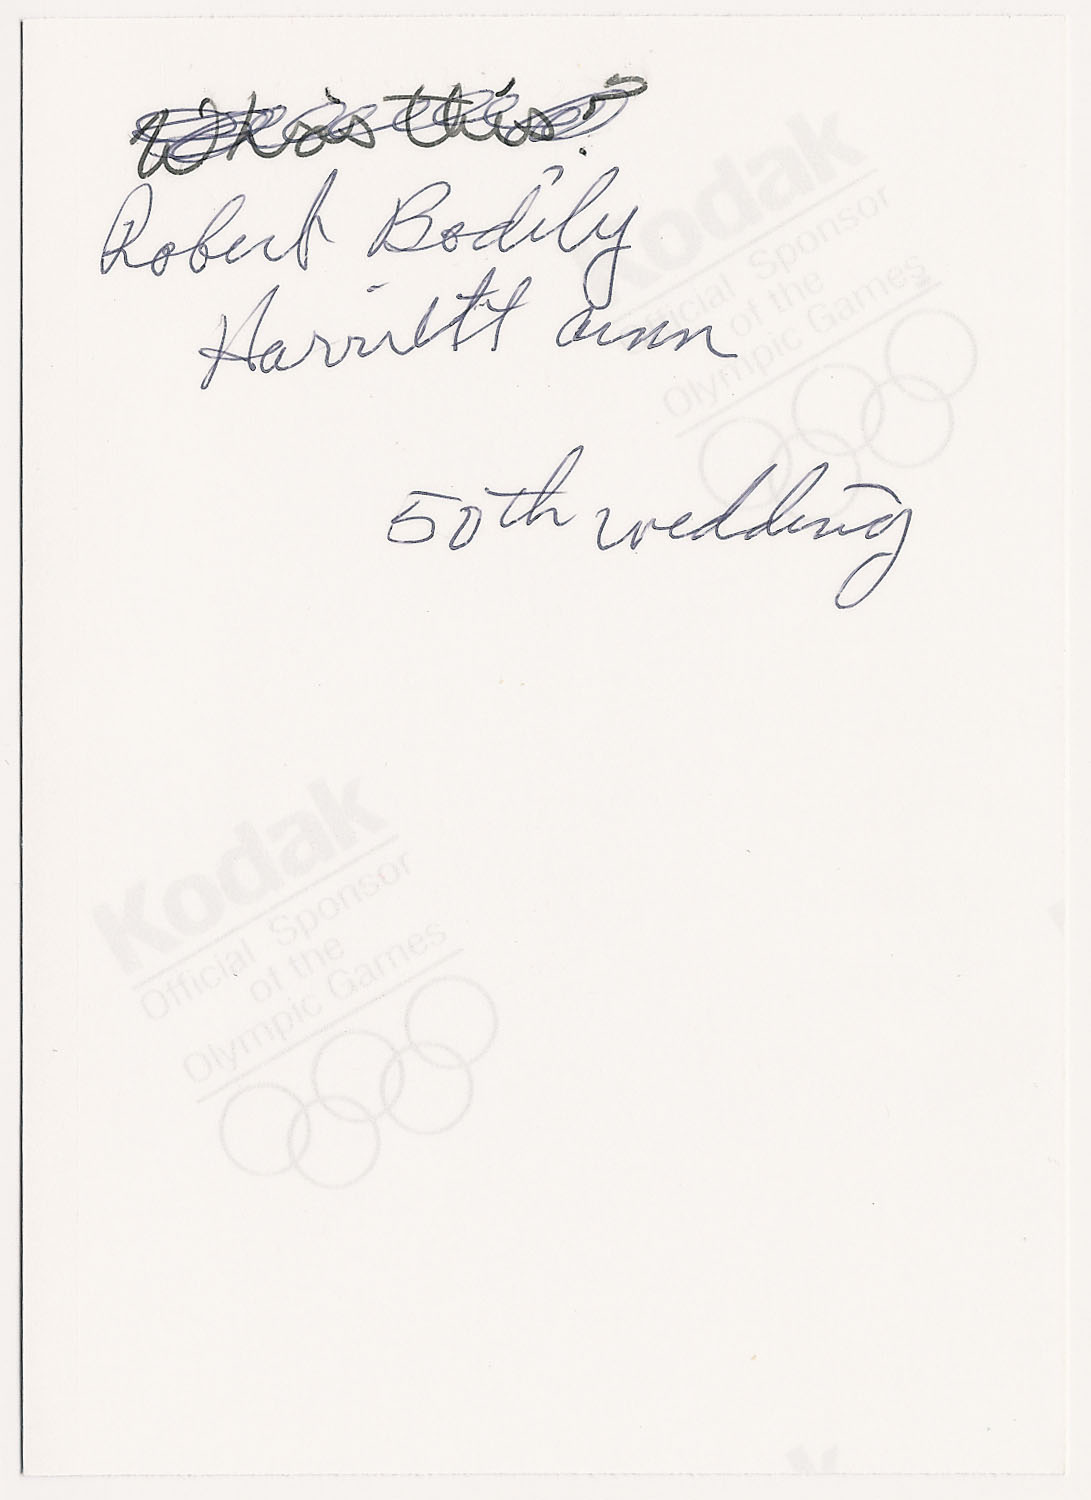 Who is this?
Robert Bodily
Harriett Ann
50th wedding
Kodak
Official Sponsor
of the
Olympic Games
Kodak
Official Sponsor
of the
Olympic Games